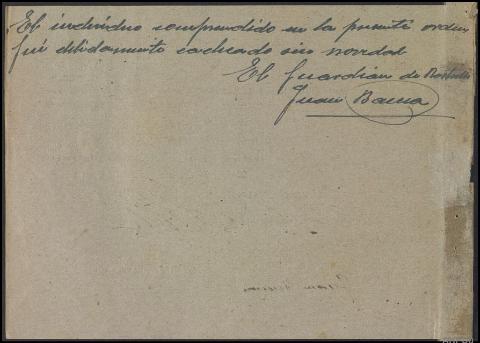 El individuo comprendido en la presente orden
fué debidamente cacheado sin novedad
El Guardian de Rastrillo
Juan Baena